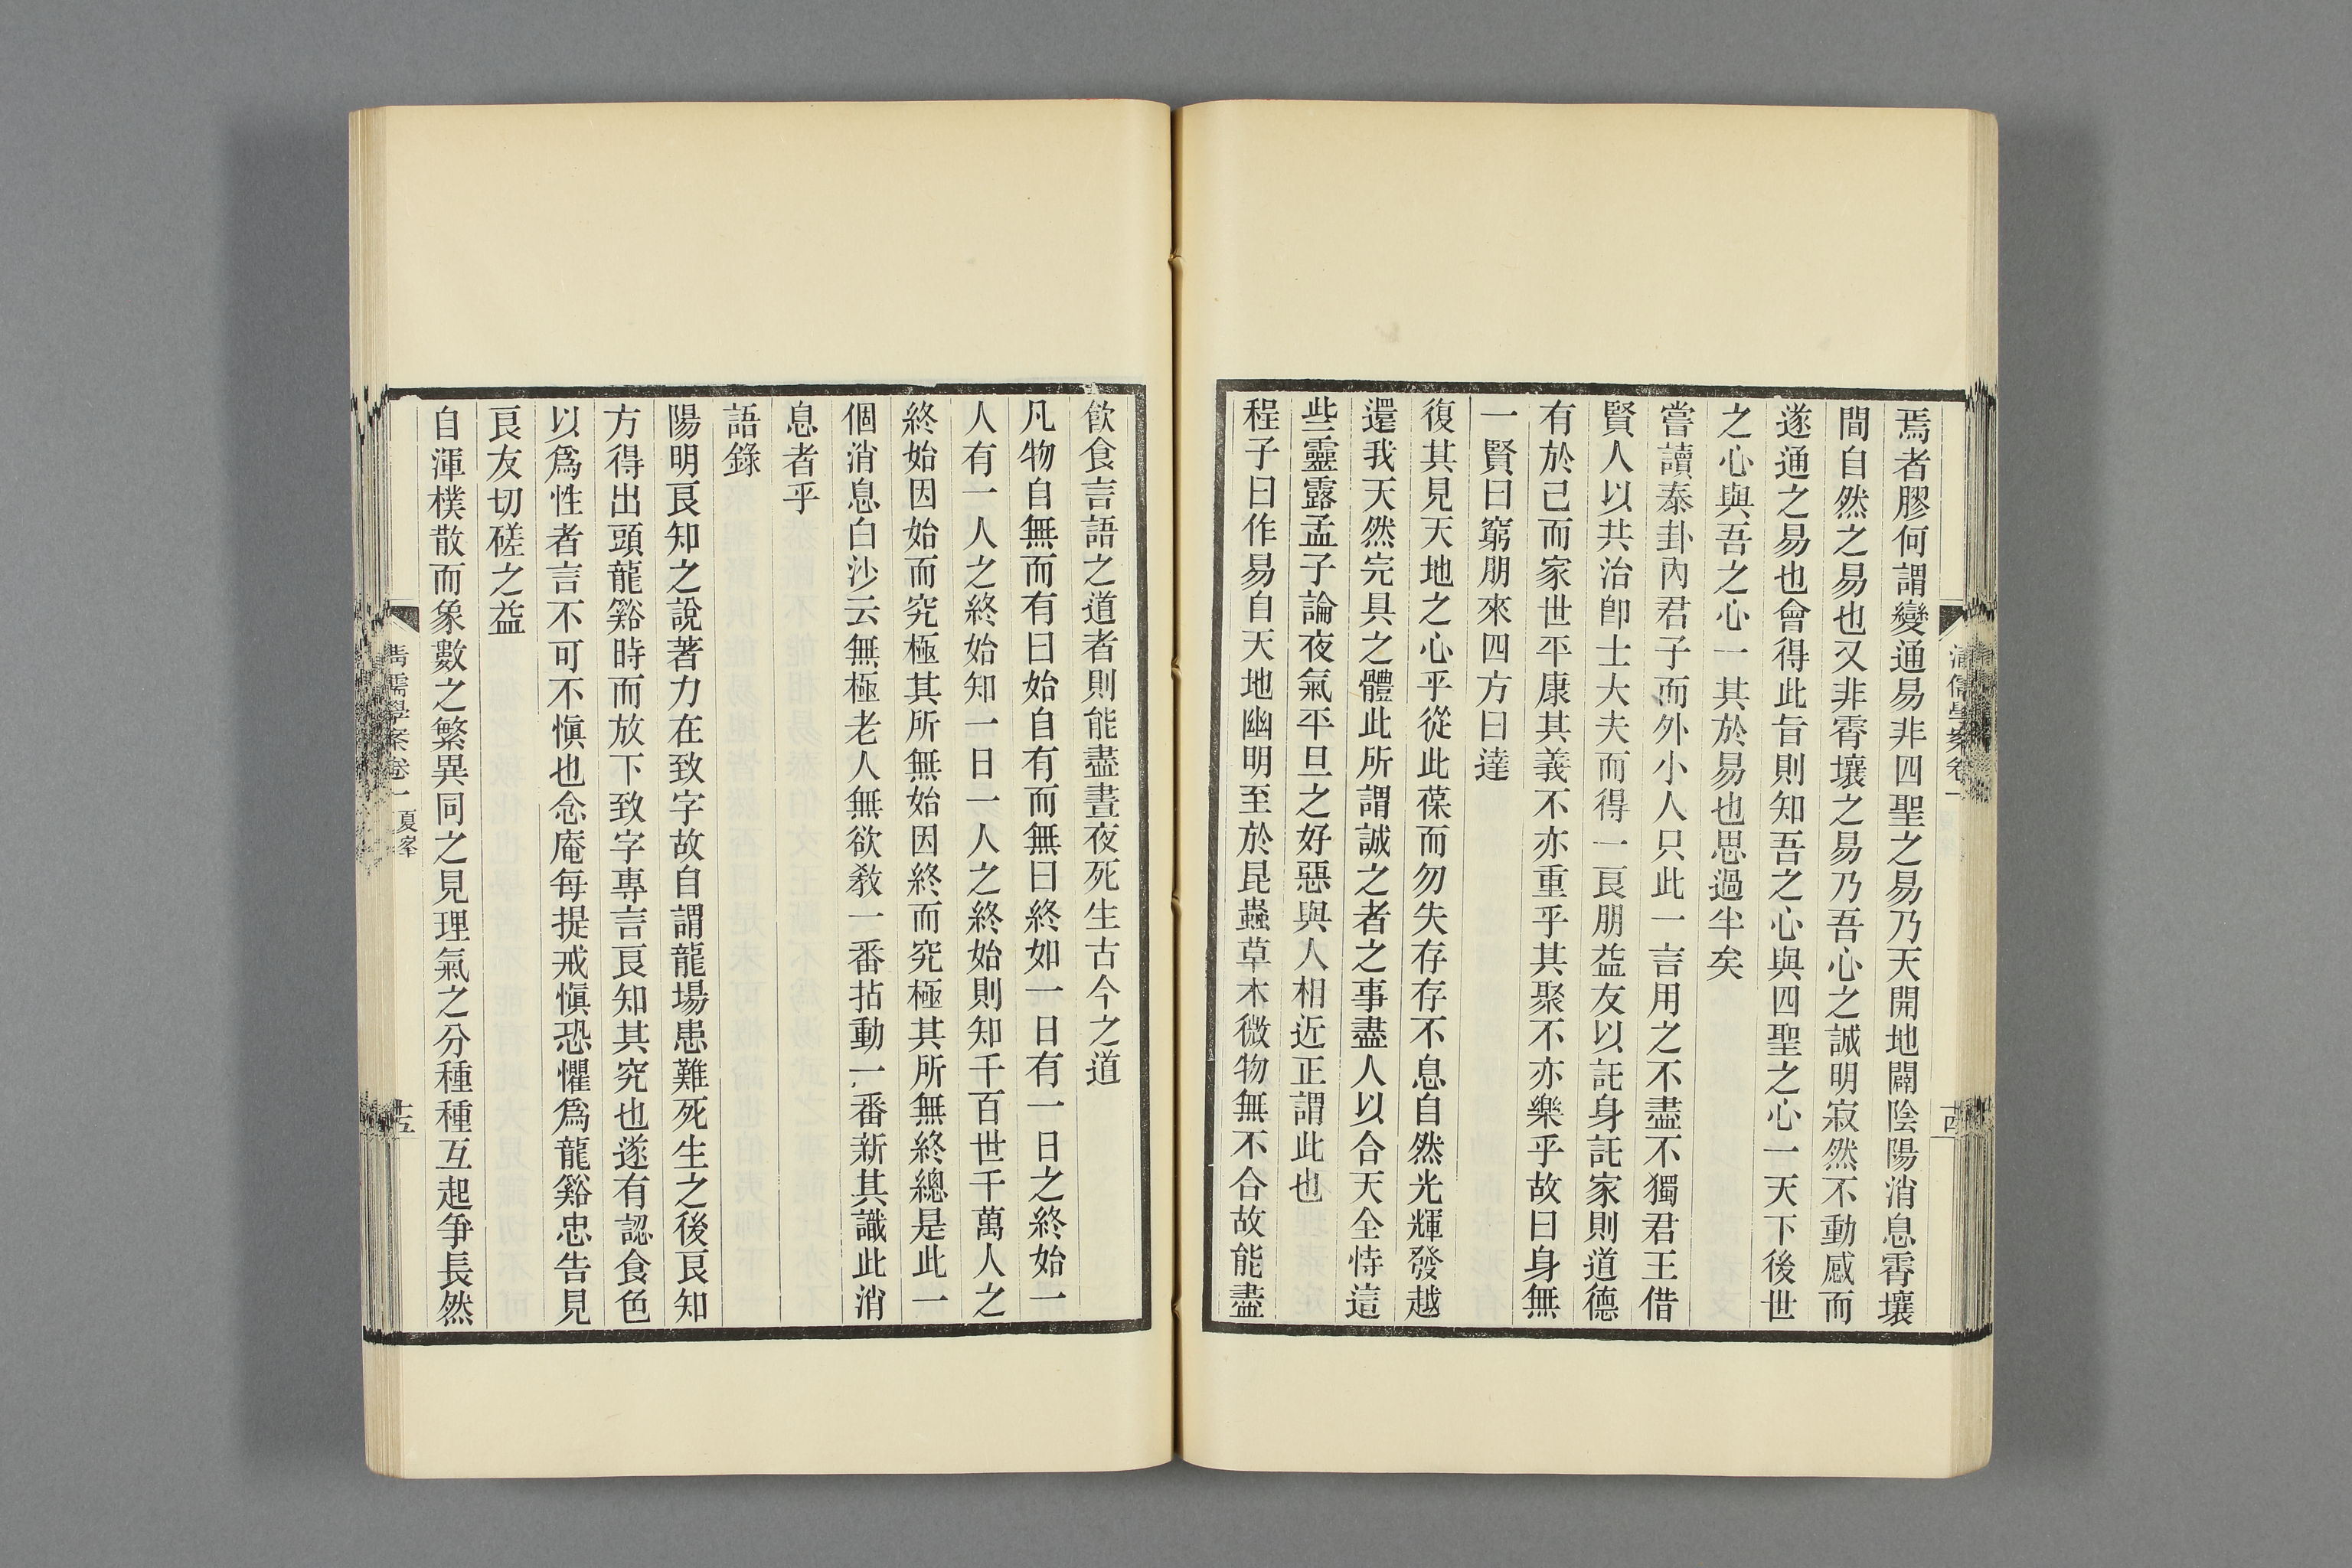 焉者膠何謂變通易非四聖之易乃天開地闢陰陽消息霄壤
間自然之易也又非霄壤之易乃吾心之誠明寂然不動感而
遂通之易也會得此旨則知吾之心與四聖之心一天下後世
之心與吾之心一其於易也思過半矣
嘗讀泰卦內君子而外小人只此一言用之不盡不獨君王借
賢人以共治卽士大夫而得一良朋益友以託身託家則道德
有於己而家世平康其義不亦重乎其聚不亦樂乎故曰身無
一賢曰窮朋來四方曰達
復其見天地之心乎從此葆而勿失存存不息自然光輝發越
還我天然完具之體此所謂誠之者之事盡人以合天全恃這
些靈露孟子論夜氣平旦之好惡與人相近正謂此也
程子曰作易自天地幽明至於昆蟲草木微物無不合故能盡
清儒學案卷一
十四
飮食言語之道者則能盡晝夜死生古今之道
凡物自無而有曰始自有而無曰終如一日有一日之終始一
人有一人之終始知一日一人之終始則知千百世千萬人之
終始因始而究極其所無始因終而究極其所無終總是此一
個消息白沙云無極老人無欲敎一番拈動一番新其識此消
息者乎
語錄
陽明良知之說著力在致字故自謂龍場患難死生之後良知
方得出頭龍谿時而放下致字專言良知其究也遂有認食色
以爲性者言不可不愼也念庵每提戒愼恐懼爲龍谿忠告見
良友切磋之益
自渾樸散而象數之繁異同之見理氣之分種種互起爭長然
清儒學案卷一 夏峯
十五